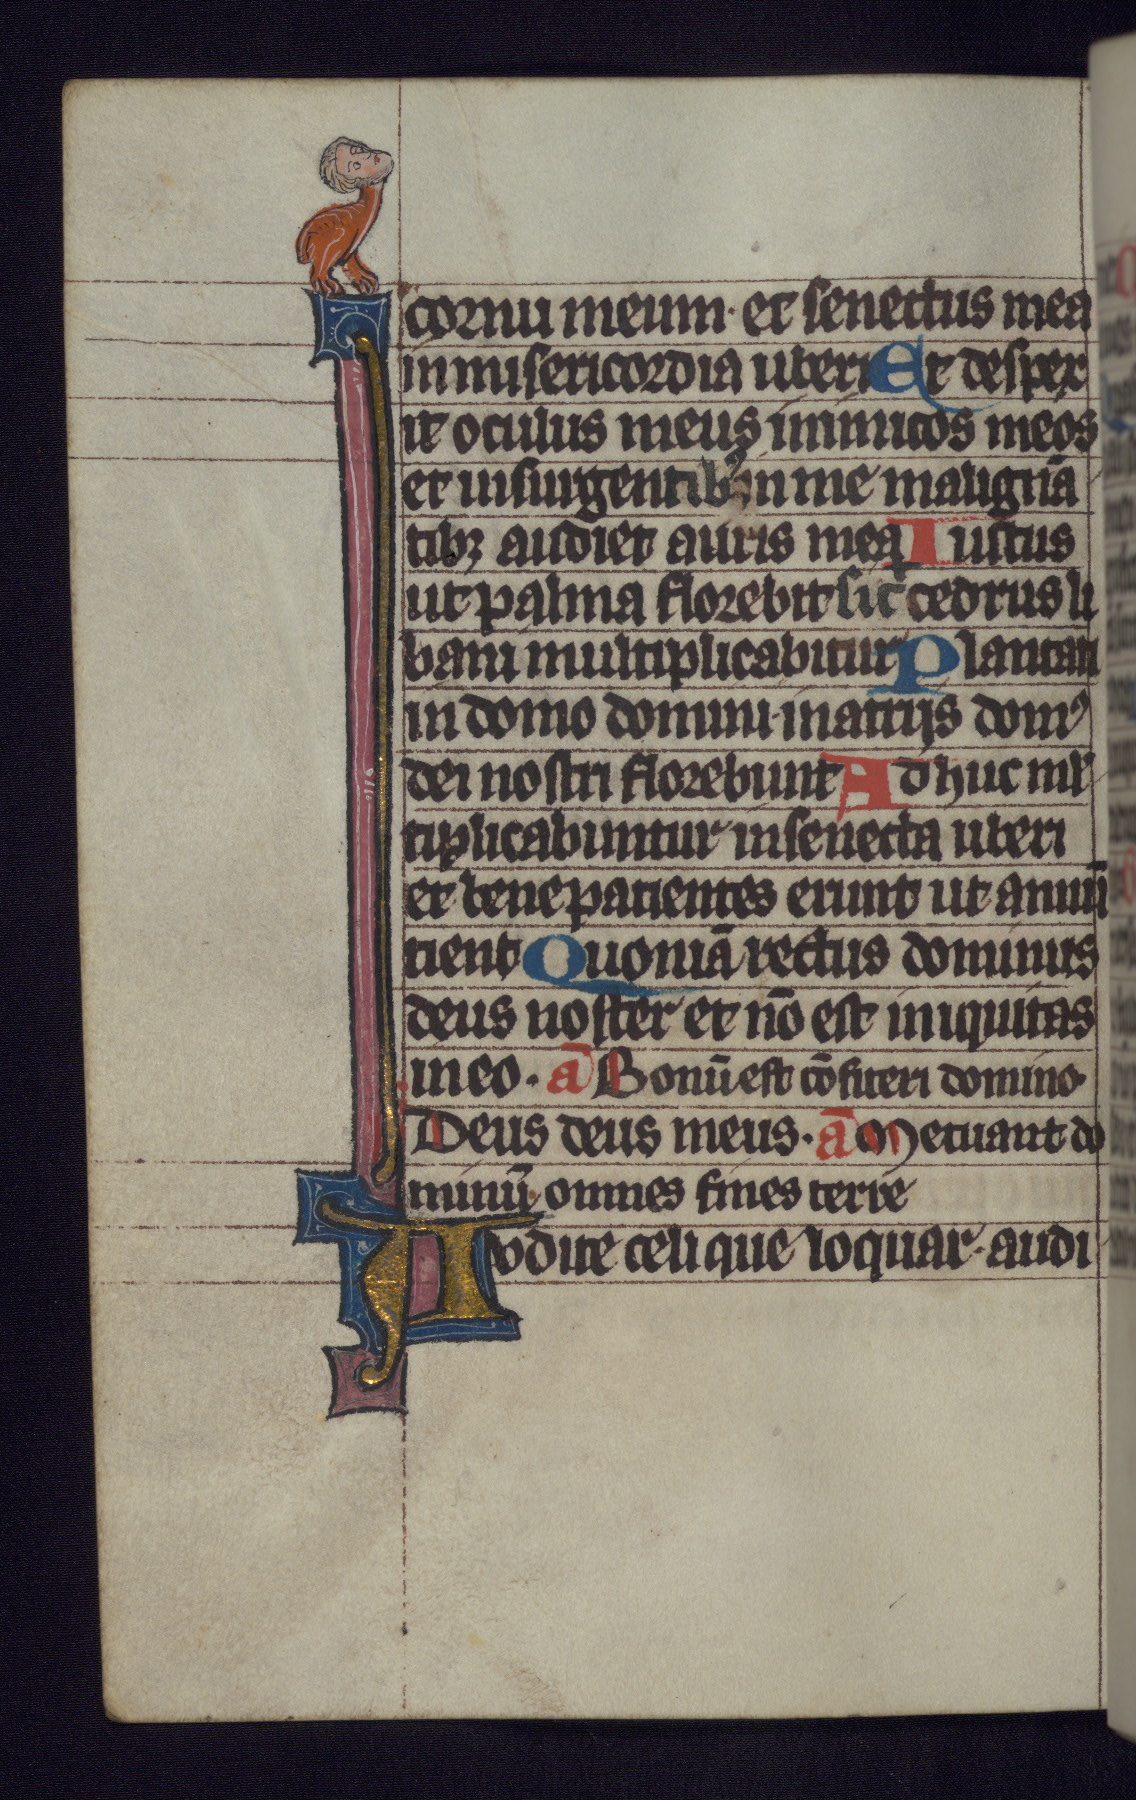 cornu meum· et senectus mea
in misericordia uberi Et despex
it oculus meus inimicos meos
et insurgentibꝰ in me malignā
tibꝫ audiet auris mea Iustus
ut palma florebit sic̄ cedrus li
bani multiplicabitur Plantati
in domo domini· in atrijs domꝰ
dei nostri florebunt Ad huc ml̓
tiplicabuntur in senecta uberi
et bene patientes erunt ut annū
tient Quoniā rectus dominus
deus noster et nō est iniquitas
in eo· ā Bonū est cōfiteri domino·
Deus deus meus· ā Metuant do
minū omnes fines terre
Audite celi que loquar· audi